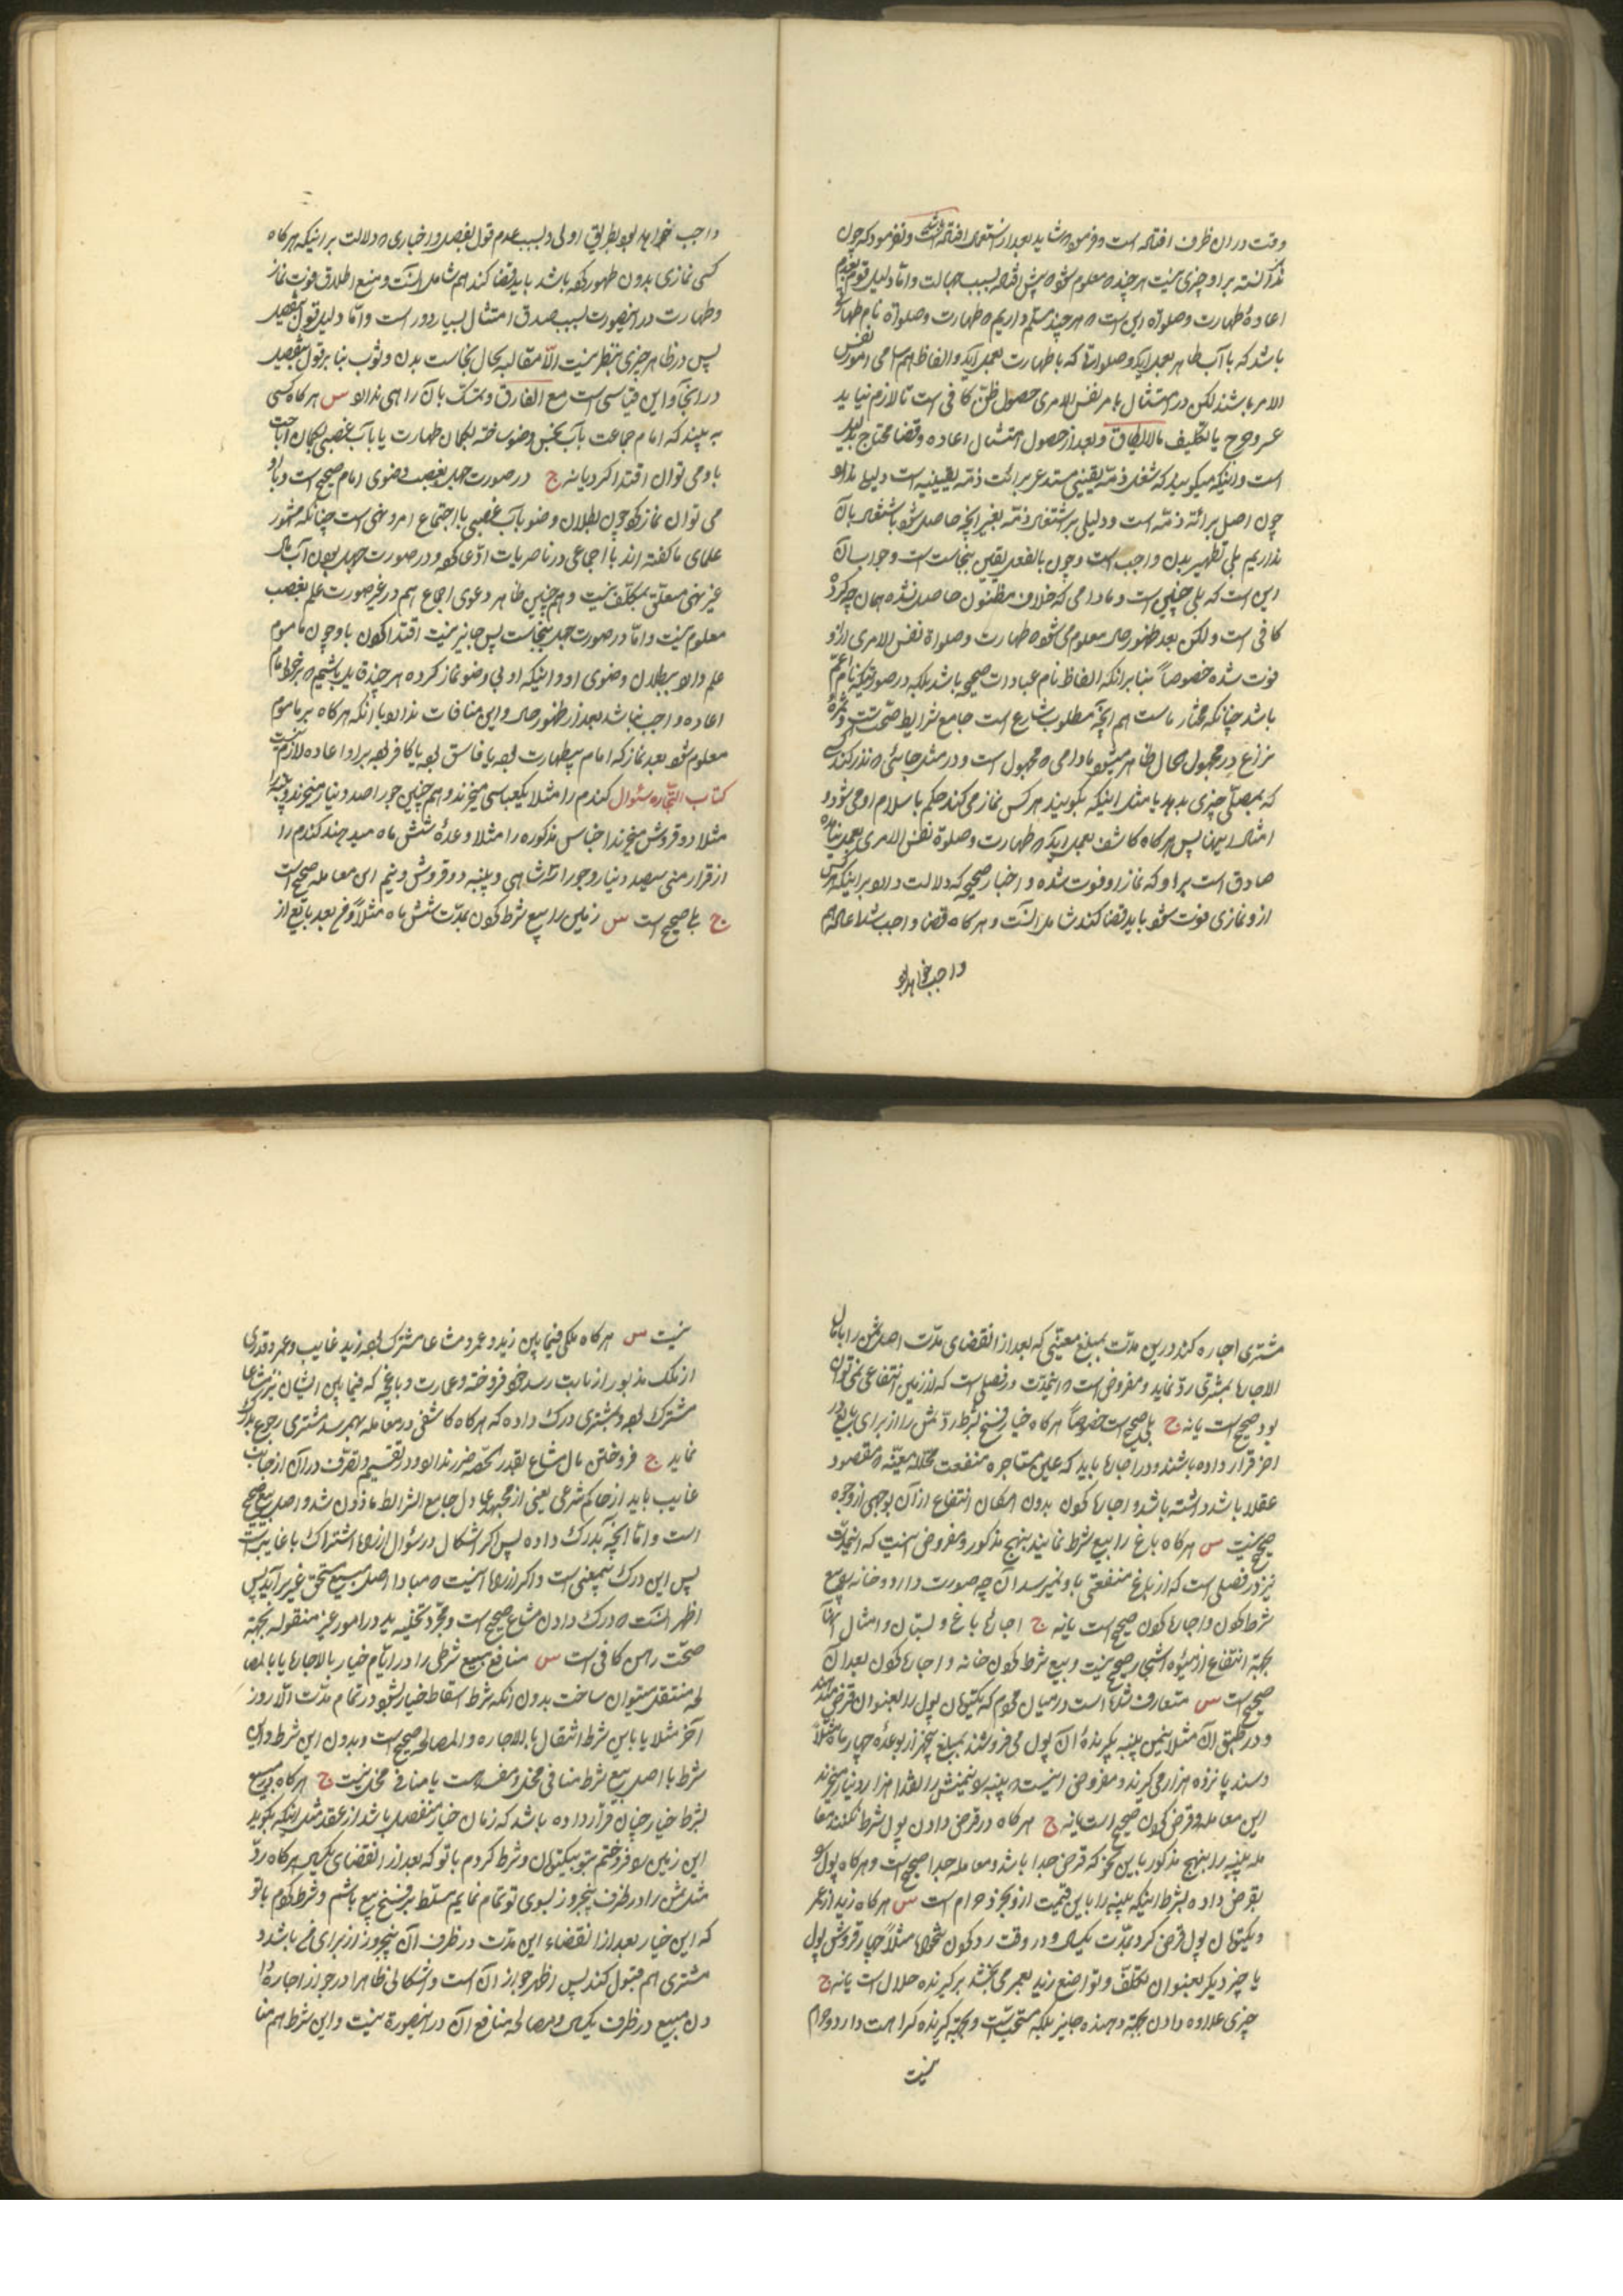 وقت در ان ظرف افتاده است و فرموده شاید بعد از استعمال افتاده است و نفرمود که چون
گذشته بر او چیزی نیست هر چند معلوم شود پیش افتاده بسبب جهالت و اما دلیل قول بعدم
اعادهٔ طهارت و صلواة این است که هر چند مسلم داریم که طهارت و صلواة نام طهارتی
باشد که با آب طاهر بعمل آید و صلواتی که با طهارت بعمل آید و الفاظ هم اسامی امور نفس
الامر باشند لکن در امتثال بامر نفس الامری حصول ظن کافی است تا لازم نیاید
عسر و حرج یا تکلیف مالایطاق و بعد از حصول امتثال اعاده و قضا محتاج بدلیل
است و اینکه میگویند که شغل ذمه یقینی مستدعی برائت ذمه یقینیه است دلیل ندارد
چون اصل برائة ذمه است و دلیلی بر اشتغال ذمه بغیر انچه حاصل شود باشتغال بان
نداریم بلی تطهیر بدن واجب است و چون بالفعل یقین بنجاست است و جواب آن
این است که بلی چنین است و مادامی که خلاف مظنون حاصل نشده همان چه کرده
کافی است و لکن بعد ظهور حال معلوم می شود که طهارت و صلواة نفس الامری از او
فوت شده خصوصاً بنا بر انکه الفاظ نام عبادات صحیحه باشد بلکه در صورتیکه نام اعم
باشد چنانکه مختار ماست هم انچه مطلوب شارع است جامع شرایط صحت است و ثمرهٔ
نزاع در مجهول الحال ظاهر میشود مادامی که مجهول است و در مثل جائی که نذر کند کسی
که بمصلی چیزی بدهد یا مثل اینکه بگویند هر کس نماز می کند حکم باسلام او می شود و
امثال اینها پس هر گاه کاشف بعمل آید که طهارت و صلوة نفس الامری بعمل نیامده
صادق است بر او که نماز از او فوت شده و اخبار صحیحه که دلالت دارد بر اینکه هر کس
از و نمازی فوت شود باید قضا کند شامل انست و هر گاه قضا واجب شد اعاده هم
واجب خواهد بود
واجب خواهد بود بطریق اولی و بسبب عدم قول بفصل و اخباری که دلالت بر اینکه هر گاه
کسی نمازی بدون طهور کرده باشد باید قضا کند هم شامل انست و منع اطلاق فوت نماز
و طهارت در اینصورت بسبب صدق امتثال بسیار دور است و اما دلیل قول بتفصیل
پس در ظاهر چیزی بنظر نیست الا مقالبه بحال نجاست بدن و ثوب بنا بر قول بتفصیل
در اینجا و این قیاسی است مع الفارق و تمسک بان راهی ندارد س هر گاه کسی
به بیند که امام جماعت بآب نجس وضو ساخته بگمان طهارت یا بآب غصبی بگمان اباحت
باو می توان اقتدا کرد یا نه ج در صورت جهل بغصب وضوی امام صحیح است و باو
می توان نماز کرد چون بطلان وضو بآب غصبی یا اجتماع امر و نهی است چنانکه مشهور
علمای ما گفته اند یا اجماعی در ناصریات ادعا کرده و در صورت جهل بودن آب مال
غیر نهی متعلق بمکلف نیست و هم چنین ظاهر دعوی اجماع هم در غیر صورت علم بغصب
معلوم نیست و اما در صورت جهل بنجاست پس جایز نیست اقتدا کردن باو چون ماموم
علم دارد ببطلان وضوی او و اینکه او بی وضو نماز کرده هر چند قایل باشیم که بر خود امام
اعاده واجب نباشد بعد از ظهور حال و این منافات ندارد با انکه هر گاه بر ماموم
معلوم شود بعد نماز که امام بیطهارت بود یا فاسق بود یا کافر بود بر او اعاده لازم نیست
کتاب التجاره سئوال گندم را مثلا یکعباسی میخرند و هم چنین جو را صد دینار میخرند و پنبه را
مثلا دو قروش میخرند اجناس مذکوره را مثلا وعدهٔ شش ماه میدهند گندم را
از قرار منی سیصد دینار و جو را شاهی و پنبه دو قروش و نیم این معامله صحیح است
ج بلی صحیح است س زمین را بیع شرط کردن بمدت شش ماه مثلاً و فرع بعد بایع از
مشتری اجاره کند درین مدت بمبلغ معینی که بعد از انقضای مدت اصل ثمن را با مال
الاجاره بمشتری رد نماید و مفروض است که اینمدت در فصلی است که از زمین انتفاعی نمی توان
بود صحیح است یا نه ج بلی صحیح است خصوصاً هر گاه خیار فسخ بشرط رد ثمن را از برای بایع در
اخر قرار داده باشند و در اجاره باید که عین مستاجره منفعت محلله معینه که مقصود
عقلا باشد داشته باشد و اجاره کردن بدون امکان انتفاع از آن بوجهی از وجوه
صحیح نیست س هر گاه باغ را بیع شرط نمایند بنهج مذکور و مفروض اینست که اینمدت
نیز در فصلی است که از باغ منفعتی باو نمیرسد آن چه صورت دارد و خانه را بیع
شرط کردن و اجاره کردن صحیح است یا نه ج اجارهٔ باغ و بستان و امثال انها
بجهة انتفاع از میوه اشجار صحیح نیست و بیع شرط کردن خانه و اجاره کردن بعد ان
صحیح است س متعارف شده است در میان مردم که یکتومان پول را بعنوان قرض میدهند
و در طبق ان مثلا نیمن پنبه بگیرندهٔ ان پول می فروشند بمبلغ پنجهزار بوعدهٔ چهار ماه مثلاً
و سند پانزده هزار می گیرند و مفروض اینست که پنبه را نیمنش را نقدا هزار دینار میخرند
این معامله و قرض کردن صحیح است یا نه ج هر گاه در قرض دادن پول شرط نکنند معا
مله پنبه را بنهج مذکور باین نحو که قرض جدا باشد و معامله جدا صحیح است و هر گاه پول را
بقرض داده بشرط اینکه پنبه را باین قیمت از و بخرد حرام است س هر گاه زید از عمر
و یکتومان پول قرض کرد بمدت یکسال و در وقت رد کردن تنخواه مثلاً چهار قروش پول
یا چیز دیگر بعنوان تکلف و تواضع زید بعمر می بخشد بر گیرنده حلال است یا نه ج
چیزی علاوه دادن بجهة دهنده جایز بلکه مستحب است و بجهة گیرنده کراهت دارد و حرام
نیست
نیست س هر گاه ملکی فیما بین زید و عمرو مشاعا مشترک بود زید غایب و عمرو قدری
از ملک مذبور از بابت رسد خود فروخته و عمارت و باغچه که فیما بین ایشان نیز مشاعا
مشترک بود و بمشتری درک داده که هر گاه کاشفی در معامله بهم رسد مشتری رجوع بدرک
نماید ج فروختن مال مشاع بقدر حصه ضرر ندارد و در تقسیم و تصرف در آن از جانب
غایب باید از حاکم شرعی یعنی از مجتهد عادل جامع الشرائط ماذون شد و اصل بیع صحیح
است و اما انچه بدرک داده پس اگر اشکال در سئوال از راه اشتراک با غایب است
پس این درک بیمعنی است و اگر از راه اینست که مبادا اصل مبیع مستحق غیر بر آید پس
اظهر انست که درک دادن مشاع صحیح است و مجرد تخلیه ید در امور غیر منقوله بجهة
صحت رهن کافی است س منافع مبیع شرطی را در ایام خیار بالاجاره یا بالمصا
لحه منتقل میتوان ساخت بدون انکه شرط اسقاط خیار بشود در تمام مدت الا روز
آخر مثلا یا باین شرط انتقال بالاجاره و المصالحه صحیح است و بدون این شرط و این
شرط با اصل بیع شرط منافی مخل و مفسد است یا منافی مخل نیست ج هر گاه در بیع
بشرط خیار چنان قرار داده باشد که زمان خیار منفصل باشد از عقد مثل اینکه بگوید
این زمین را فروختم بتو بیکتومان و شرط کردم با تو که بعد از انقضای یکسال هر گاه رد
مثل ثمن را در ظرف پنجروز بسوی تو تمام نمایم مسلط بر فسخ بیع باشم و شرط کردم با تو
که این خیار بعد از انقضاء این مدت در ظرف آن پنجروز از برای من باشد و
مشتری هم قبول کند پس اظهر جواز ان است و اشکالی ظاهرا در جواز اجاره دا
دن مبیع در ظرف یکسال و مصالحه منافع آن در اینصورة نیست و این شرط هم منا